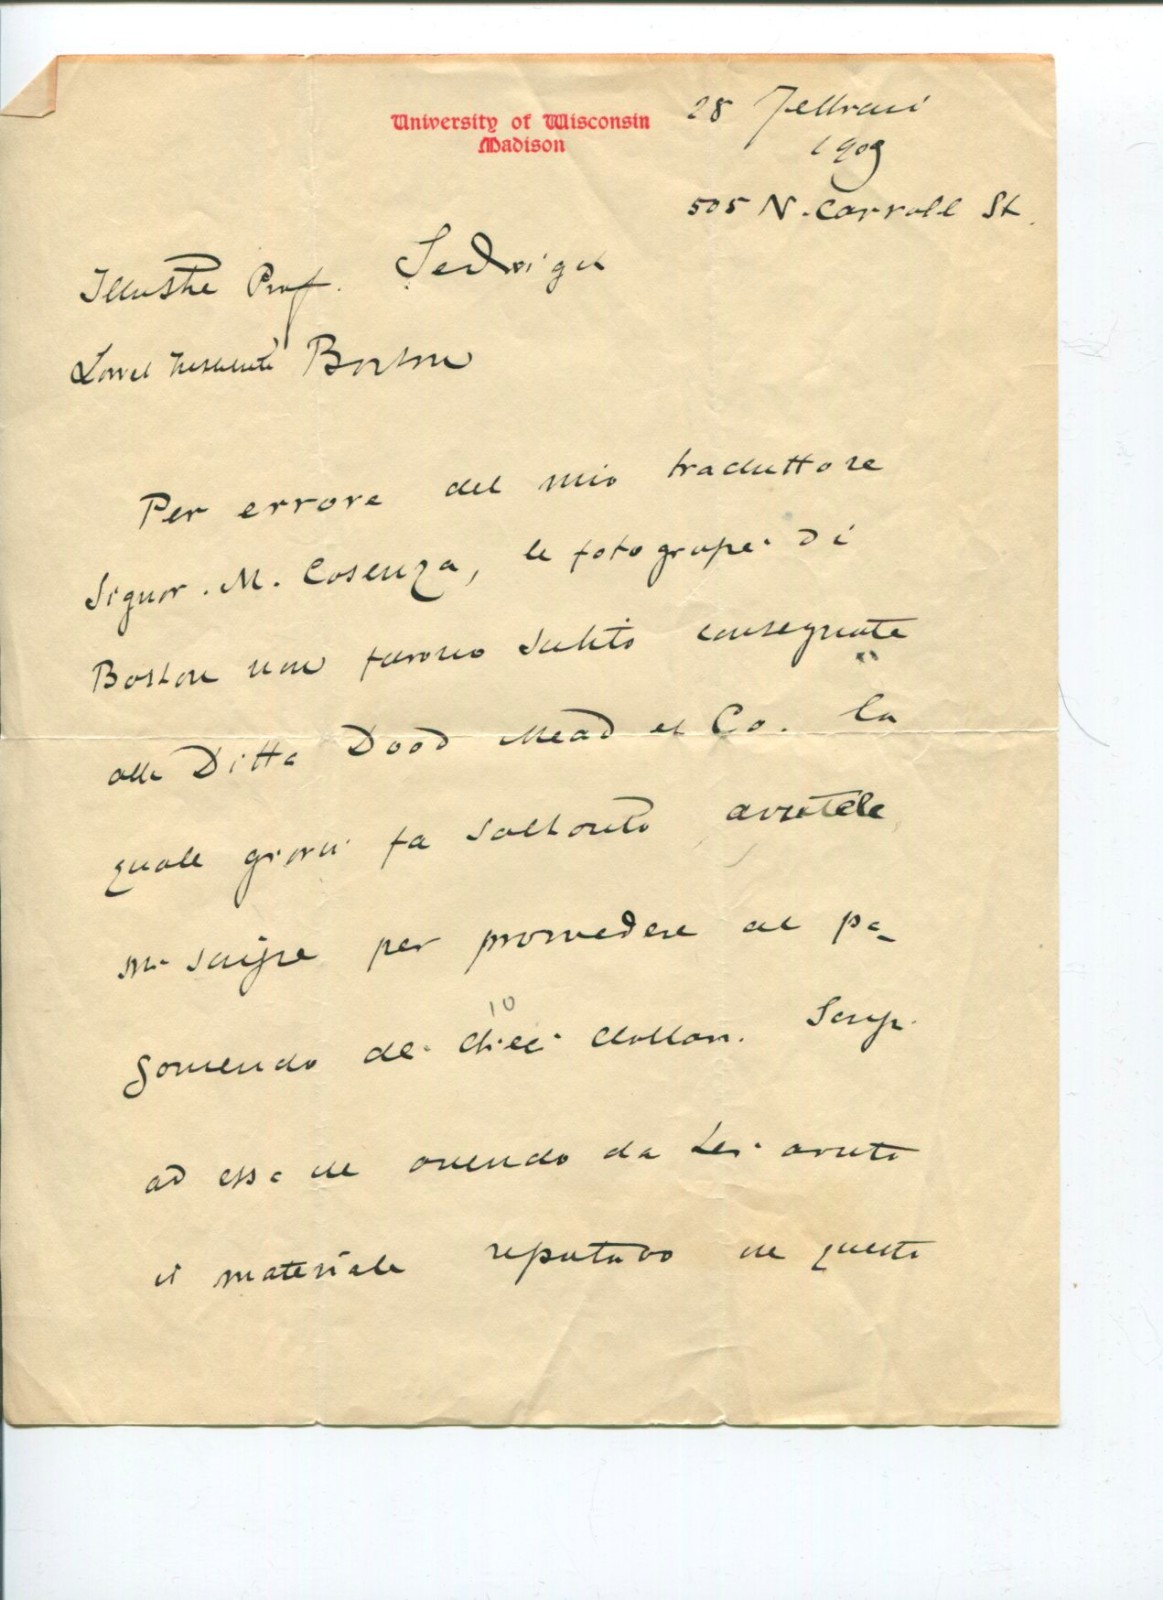 University of Wisconsin
Madison
28 Febbraio
1909
505 N. Carroll St.
Illustre Prof. Sedwigel
Lowel Institute Boston
Per errore del mio traduttore
Signor. M. Cosenza, le fotografie di
Boston non furono subito consegnate
alla Ditta Dood Mead et Co. la
quale giorni fa soltanto avutele
mi scrisse per provvedere al pa-
gamento di dieci dollari. Scrissi
10
ad essa che avendo da Lei avuto
il materiale reputavo che questo